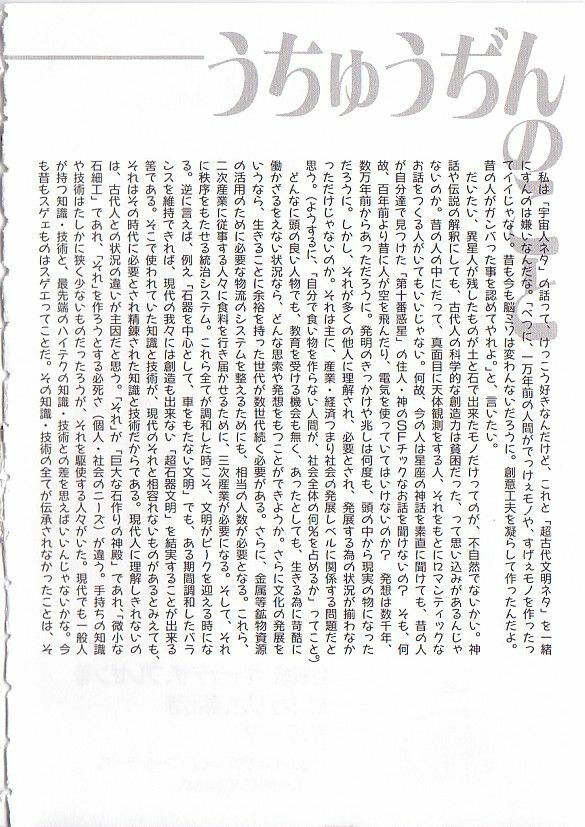 うちゅうぢんの
　私は「宇宙人ネタ」の話って、けっこう好きなんだけど、これと「超古代文明ネタ」を一緒
にすんのは嫌いなんだな。「べつに、一万年前の人間がでっけぇモノや、すげぇモノを作ったっ
てイイじゃない。昔も今も脳ミソは変わんないだろうに。創意工夫を凝らして作ったんだよ。
昔の人がガンバった事を認めてやれよ。」と、言いたい。
　だいたい、異星人が残したものが土と石で出来たモノだけってのが、不自然でないかい。神
話や伝説の解釈にしても、古代人の科学的な創造力は貧困だった、って思い込みがあるんじゃ
ないのか。昔の人の中にだって、真面目に天体観測をする人、それをもとにロマンティックな
お話をつくる人がいてもいいじゃない。何故、今の人は星座の神話を素直に聞けても、昔の人
が自分達で見つけた「第十番惑星」の住人・神のＳＦチックなお話を聞けないの？　そも、何
故、百年前より昔に人が空を飛んだり、電気を使っていてはいけないのか？　発想は数千年、
数万年前からあっただろうに。発明のきっかけや兆しは何度も、頭の中から現実の物になった
だろうに。しかし、それが多くの他人に理解され、必要とされ、発展する為の状況が揃わなか
っただけじゃないのか。それは主に、産業・経済つまり社会の発展レベルに関係する問題だと
思う。（ようするに、「自分で食い物を作らない人間が、社会全体の何％を占めるか」ってこと。）
　どんなに頭の良い人物でも、教育を受ける機会も無く、あったとしても、生きる為に苛酷に
働かざるをえない状況なら、どんな思索や発想をもつことができようか。さらに文化の発展を
いうなら、生きることに余裕を持った世代が数世代続く必要がある。さらに、金属等鉱物資源
の活用のために必要な物流のシステムを整えるためにも、相当の人数が必要となる。これら、
二次産業に従事する人々に食料を行き届かせるために、三次産業が必要になる。そして、それ
に秩序をもたせる統治システム。これら全てが調和した時こそ、文明がピークを迎える時にな
る。逆に言えば、例え「石器を中心として、車をもたない文明」でも、ある期間調和したバラ
ンスを維持できれば、現代の我々には創造も出来ない「超石器文明」を結実することが出来る
筈である。そこで使われていた知識と技術が、現代のそれと相容れないものがあるとみえても、
それはその時代に必要とされ精錬された知識と技術だからである。現代人に理解しきれないの
は、古代人との状況の違いが主因だと思う。「それ」が「巨大な石作りの神殿」であれ、「微小な
石細工」であれ、「それ」を作ろうとする必死さ（個人・社会のニーズ）が違う。手持ちの知識
や技術はたしかに狭く少ないものだったろうが、それを駆使する人々がいた。現代でも一般人
が持つ知識・技術と、最先端のハイテクの知識・技術との差を思えばいいんじゃないかな。今
も昔もスゲェものはスゲエってことだ。その知識・技術の全てが伝承されなかったことは、そ